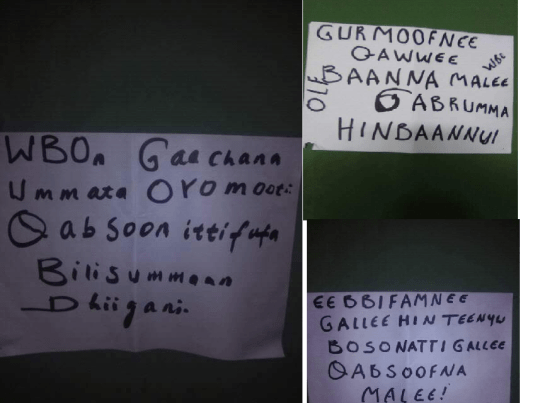 WBOn Gaachana
Ummata Oromooti
Qabsoon ittifufa
Bilisummaan
Dhiigani.
GURMOOFNEE
QAWWEE WBO
OLF BAANNA MALEE
GABRUMMA
HINBAANNU!
EEBBIFAMNEE
GALLEE HINTEENYU
BOSONATTI GALLEE
QABSOOFNA
MALEE!